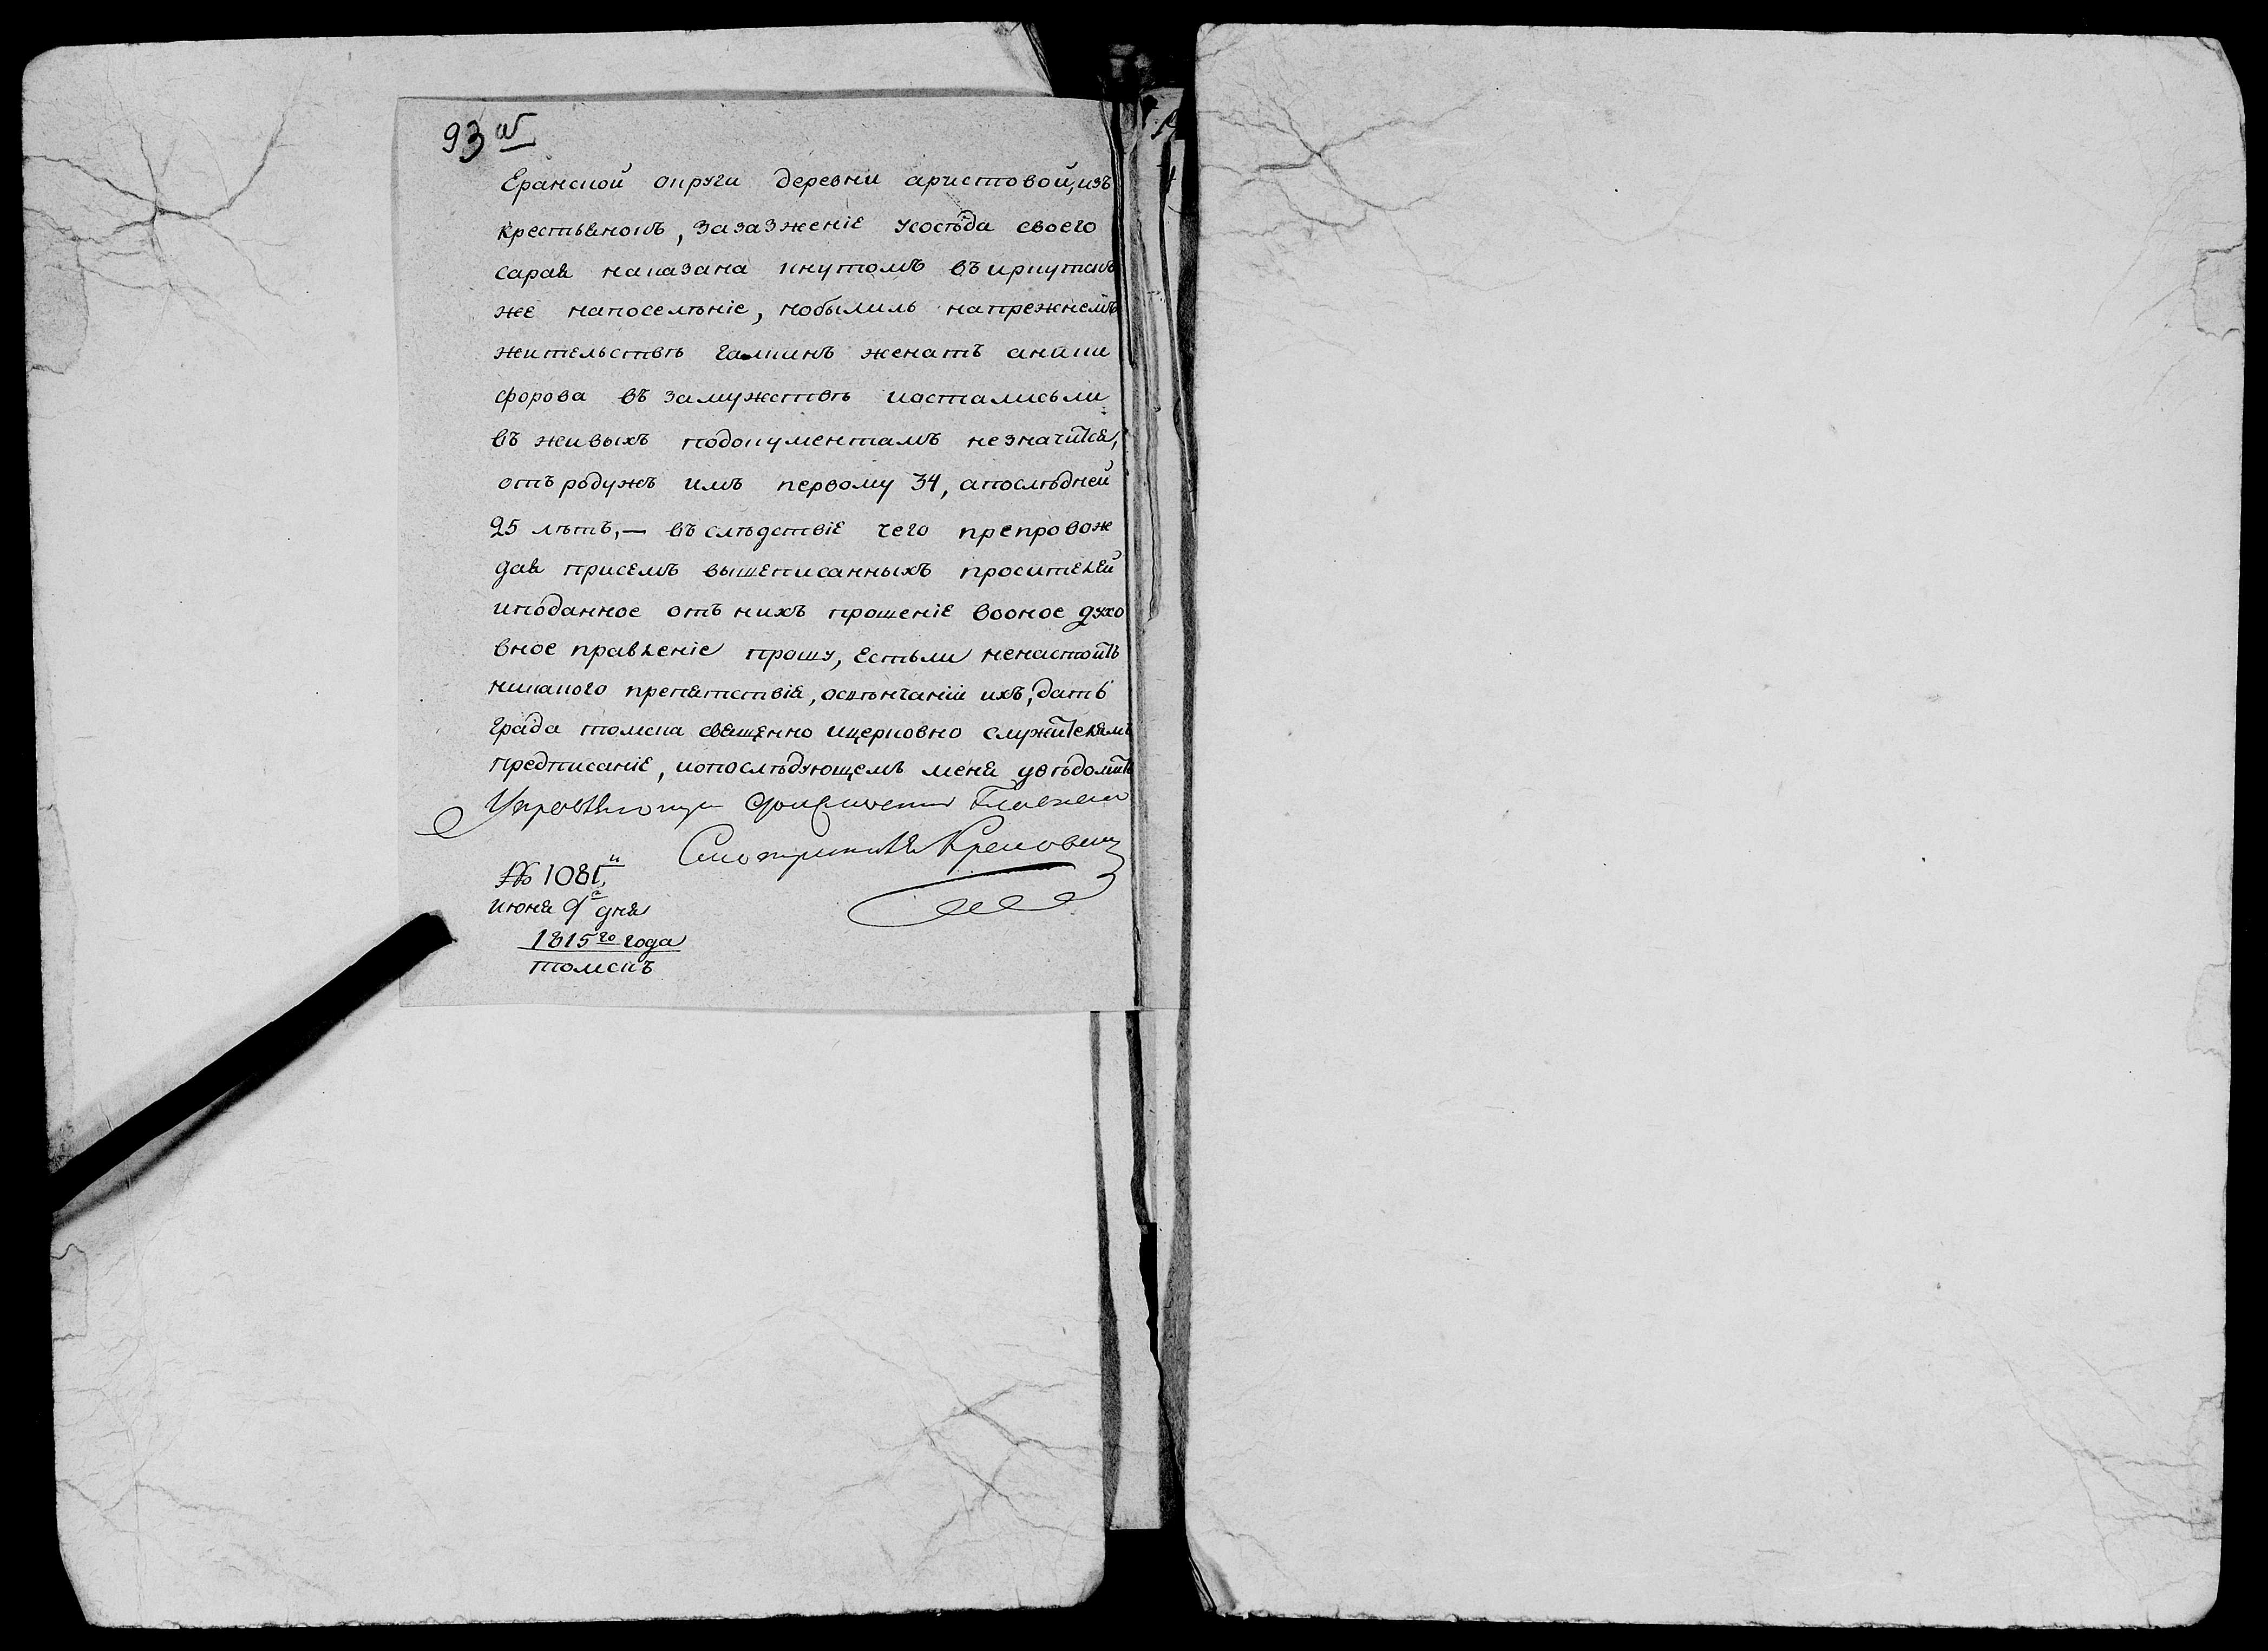 93 об
Еранской округи деревни аристовой, изъ
крестьянокъ, зазазженіе усосѣда своего
сарая наказана кнутомъ въиркутскъ
же напоселѣніе, нобылиль напрежнемъ
жительствѣ галкинъ женатъ аники
форова въ замужствѣ иосталисьли
въ живыхъ подокументамъ незначится,
отъ родужъ имъ первому 34, апослѣдней
25 лѣтъ,— въ слѣдствіе чего препровож
дая присемъ вышеписанныхъ просителей
иподанное отъ нихъ прошеніе вооное духо
вное правленіе прошу, Естьли ненастоитъ
никакого препятствія, освѣнчаніи ихъ, дать
града томска священно ицерковно служителямъ
предписаніе, ипослѣдующемъ меня увѣдомить
Смотритель
№ 1081
июня 9 дня
1815го года
томскъ